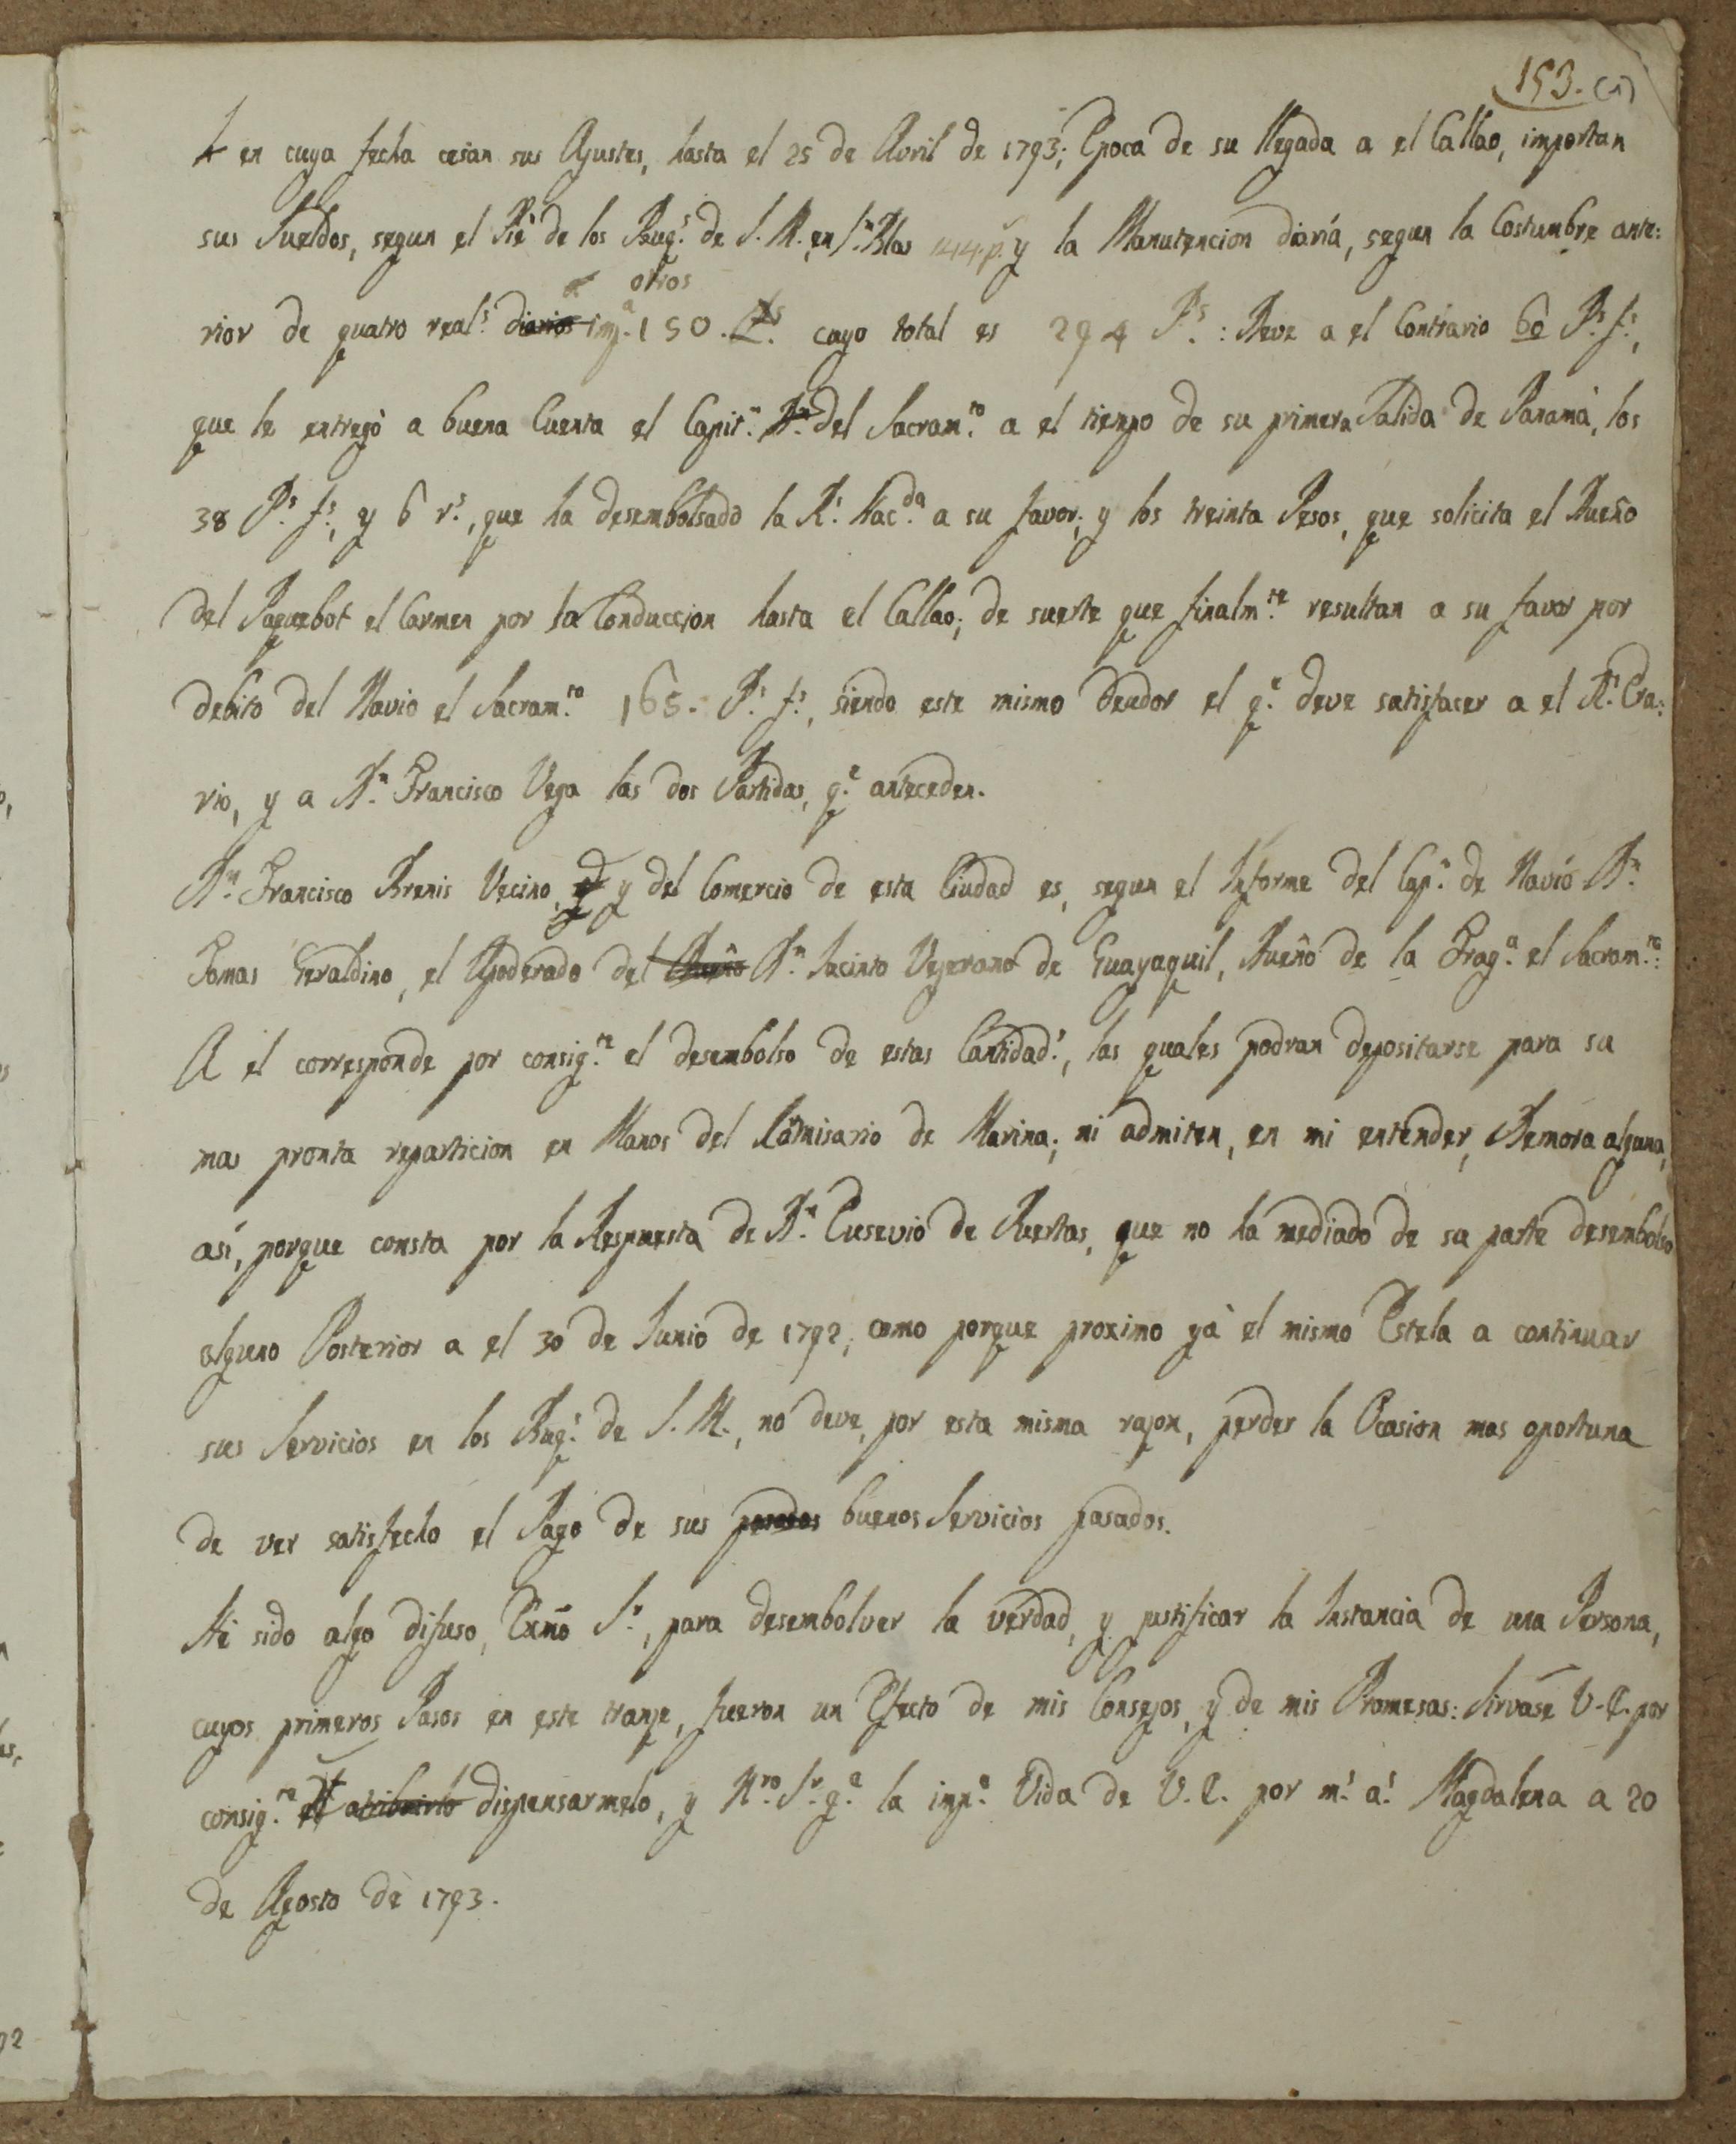 153. (1)
en cuya fecha cesan sus Ajustes, hasta el 25 de Avril de 1793; Epoca de su llegada a el Callao, importan
sus Sueldos, segun el Pié de los Buq.s de S. M. en S.n Blas 144 p.s y la Manutencion diaria, segun la Costumbre ante:
otros
rior de quatro real.s diarios imp.a 150. cuyo total es 294 P.s: Deve a el Contrario 60 P.s f.s,
que le entregó a buena Cuenta el Capit.n del Sacram.to a el tiempo de su primera Salida de Panamá, los
38 P.s f.s, y 6 r.s, que ha desembolsado la R.l Hac.da a su favor; y los treinta Pesos, que solicita el Dueño
del Paquebot el Carmen por la Conduccion hasta el Callao; de suerte que finalm.te resultan a su favor por
debito del Navio el Sacram.to 165. P.s f.s, siendo este mismo deudor el q.e deve satisfacer a el R.l Era:
rio, y a D.n Francisco Vega las dos Partidas, q.e anteceden.
D.n Francisco Brenis Vecino, y del Comercio de esta Ciudad es, segun el Informe del Cap.n de Navio D.n
Tomas Geraldino, el Apoderado del Dueño D.n Jacinto Vejerano de Guayaquil, Dueño de la Frag.a el Sacram.to:
A el corresponde por consig.te el desembolso de estas Cantidad.s, las quales podran depositarse para su
mas pronta reparticion en Manos del Comisario de Marina; ni admiten, en mi entender, Demora alguna,
asi, porque consta por la Respuesta de D.n Eusevio de Puertas, que no ha mediado de su parte desembolso
alguno Posterior a el 30 de Junio de 1792; como porque proximo yá el mismo Estela a continuar
sus Servicios en los Buq.s de S. M., no deve, por esta misma razon, perder la Ocasion mas oportuna
de ver satisfecho el Pago de sus pasados buenos Servicios pasados.
Hé sido algo difuso, Exmo S.r, para desembolver la verdad, y justificar la Instancia de una Persona,
cuyos primeros Pasos en este tranze, fueron un Efecto de mis Consejos, y de mis Promesas: Sirvase V. E. por
consig.te atribuirlo dispensarmelo, y N.ro S.r g.e la imp.e Vida de V. E. por m.s a.s Magdalena a 20
de Agosto de 1793.